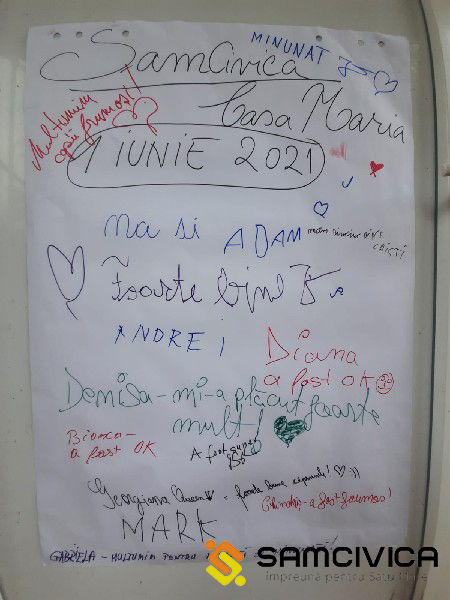 SamCivica
MINUNAT
Casa Maria
Mulțumim
copii frumosi!
1 IUNIE 2021
ADAM
Foarte bine
ANDREI
Diana
a fost OK
Denisa-mi-a plăcut foarte
mult!
Bianca-
a fost OK
A fost super
Georgiana
a fost frumos!
MARK
GABRIELA - MULȚUMIM PENTRU
SAMCIVICA
împreună pentru Satu Mare